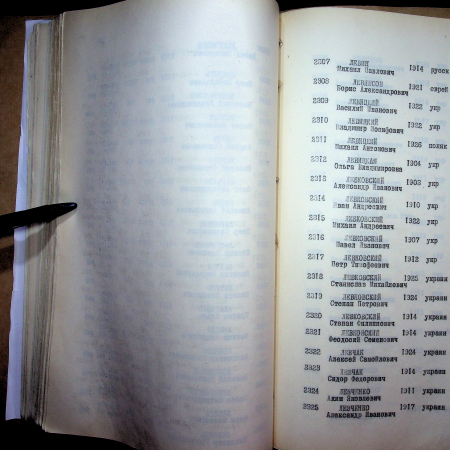 2307 ЛЕВИН 1914 русск
Михаил Павлович
2308 ЛЕВИНСОН 1921 еврей
Борис Александрович
2309 ЛЕВИЦКИЙ 1922 укр
Василий Иванович
2310 ЛЕВИЦКИЙ 1922 укр
Владимир Иосифович
2311 ЛЕВИЦКИЙ 1926 поляк
Михаил Антонович
2312 ЛЕВИЦКАЯ 1904 укр
Ольга Владимировна
2313 ЛЕВКОВСКИЙ 1903 укр
Александр Иванович
2314 ЛЕВКОВСКИЙ 1910 укр
Иван Андреевич
2315 ЛЕВКОВСКИЙ 1922 укр
Михаил Андреевич
2316 ЛЕВКОВСКИЙ 1907 укр
Павел Иванович
2317 ЛЕВКОВСКИЙ 1912 укр
Петр Тимофеевич
2318 ЛЕВКОВСКИЙ 1925 украин
Станислав Михайлович
2319 ЛЕВКОВСКИЙ 1924 украин
Степан Петрович
2320 ЛЕВКОВСКИЙ 1914 украин
Степан Филиппович
2321 ЛЕВКОВСКИЙ 1914 украин
Феодосий Семенович
2322 ЛЕВЧАК 1924 украин
Алексей Самойлович
2323 ЛЕВЧАК 1914 украин
Сидор Федорович
2324 ЛЕВЧЕНКО 1911 украин
Аким Яковлевич
2325 ЛЕВЧЕНКО 1917 украин
Александр Иванович